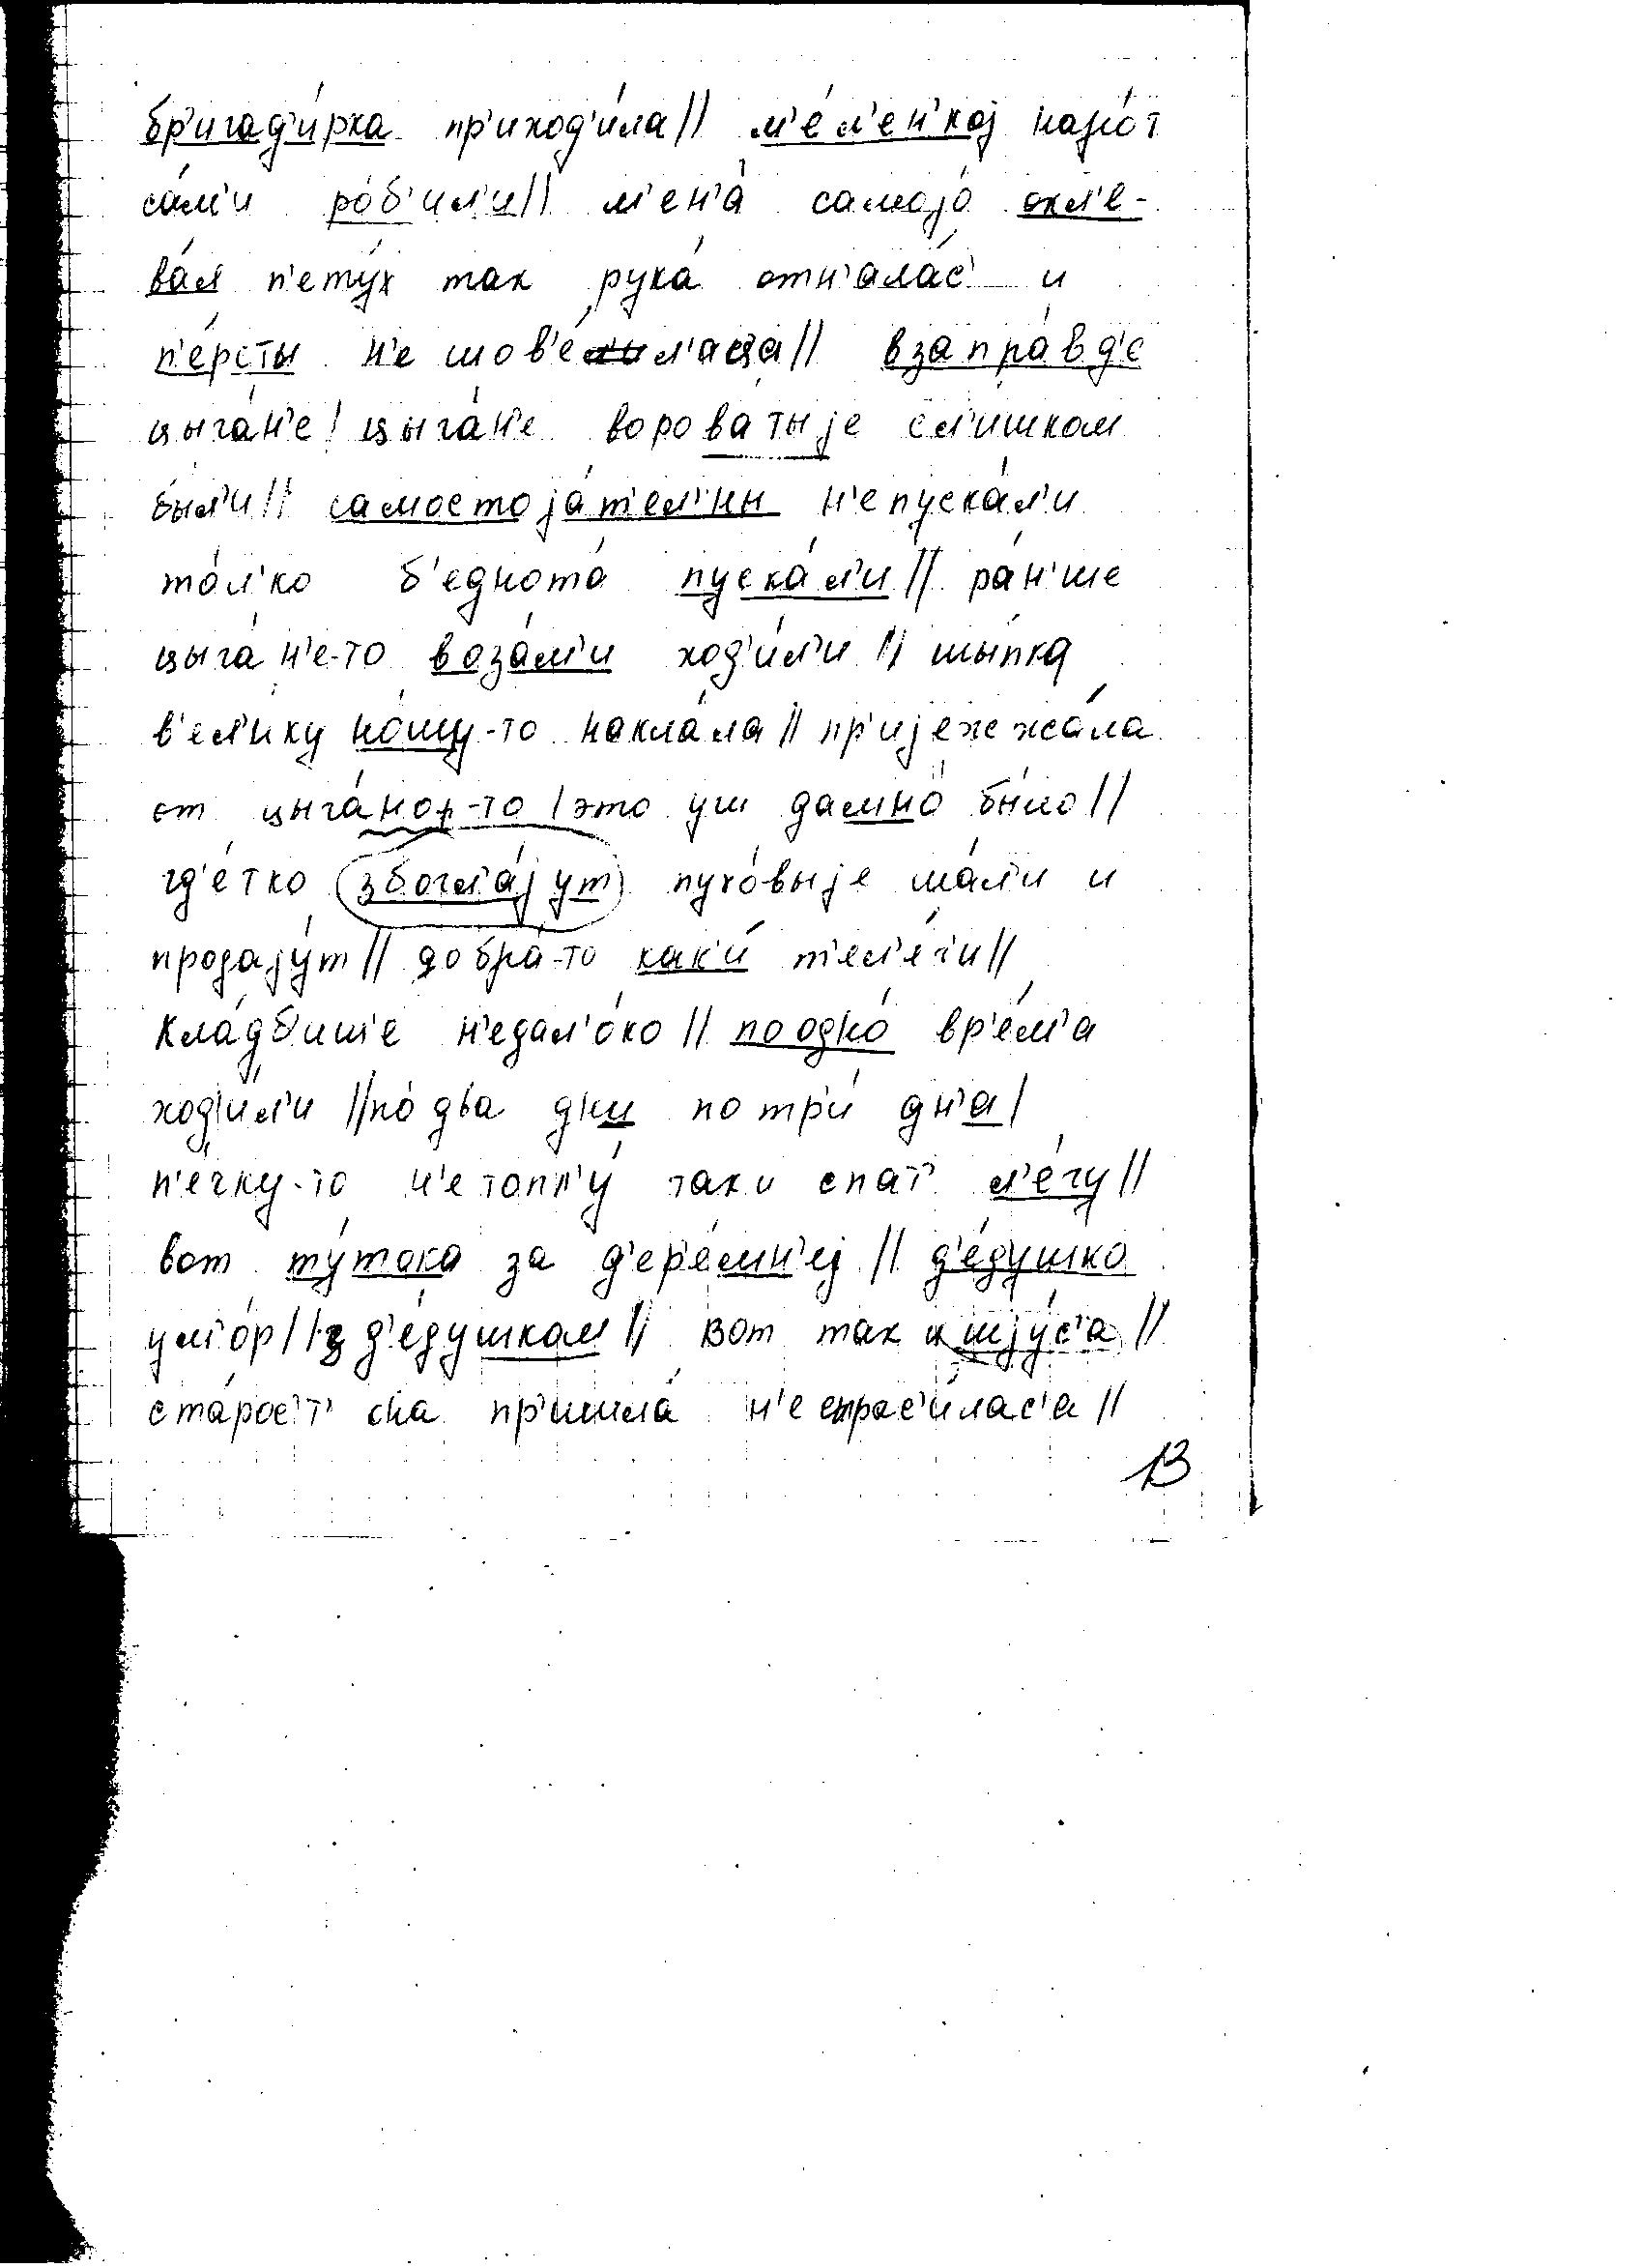 бр'игад'и́рка пр'иход'и́ла// м'е́л'ен'кој народ
са́м'и ро́б'ил'и// м'ен'а́ самојо́ окл'е-
ва́л п'ету́х так рука́ отн'ала́с' и
п'е́рсты н'е шов'е́л'аца// взапра́вд'е
цыга́н'е/ цыга́н'е ворова́тыје сл'и́шком
бы́л'и// самостоја́т'ел'нн н'епуска́л'и
то́л'ко б'еднота́ пуска́л'и// ра́н'ше
цыга́н'е-то воза́м'и ход'и́л'и // шы́пка
в'ел'и́ку но́шу-то накла́ла// пр'ијежжа́ла
от цыга́ноф-то /это уш дамно́ бы́ло//
гд'е́тко збогл'а́јут пухо́выје ша́л'и и
продају́т// добра́-то как'и́ т'ел'е́г'и//
кла́дб'иш'е н'едал'о́ко// по одно́ вр'е́м'а
ход'и́л'и //по́ два дни по тр'и́ дн'а/
п'е́чку-то н'е топл'у́ так и спат' л'е́гу//
вот ту́тока за д'ер'е́мн'еј // д'е́душко
ум'о́р// з д'е́душком// вот так и шју́с'а//
ста́рост' она пр'ишла́ н'е спрос'и́лас'а//
13